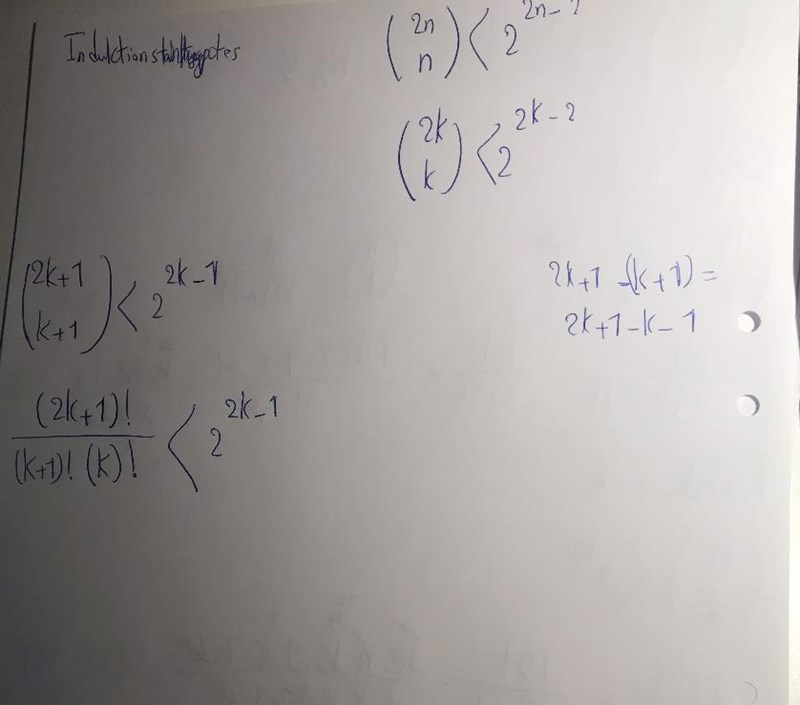 \binom{2n}{n} < 2^{2n-2}
\binom{2k}{k} < 2^{2k-2}
\binom{2k+1}{k+1} < 2^{2k-1}
2k+1-(k+1)=
2k+1-k-1
\frac{(2k+1)!}{(k+1)!(k)!} < 2^{2k-1}